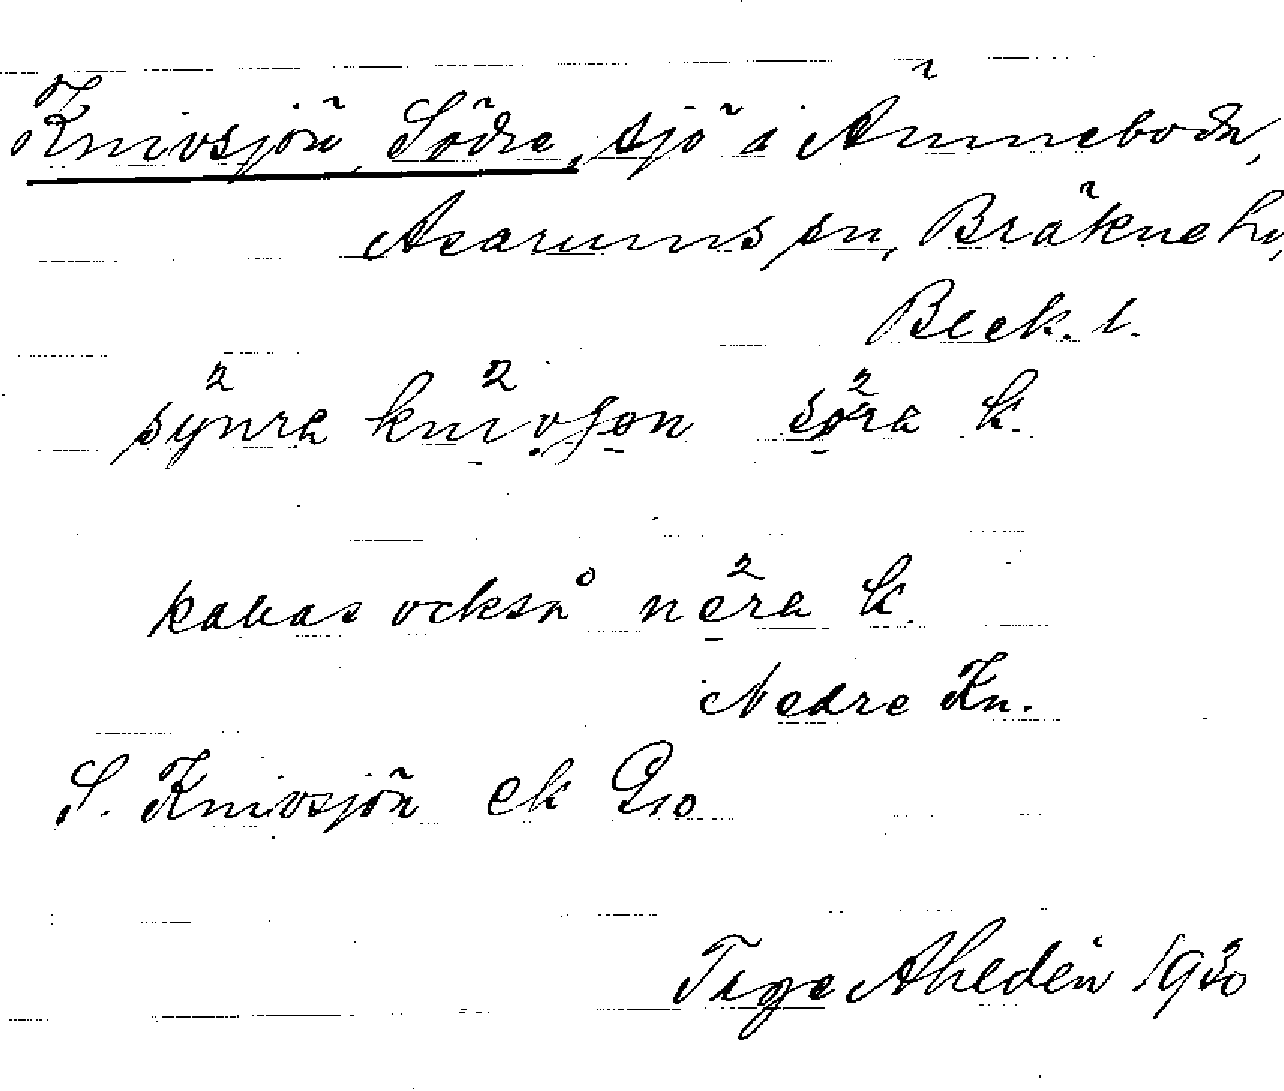 Knivsjön, Södre, sjö i Änneboda,
Asarums sn, Bräkne hd,
Bleck. l.
synra knivsjon söra k.
kallas också nera k.
Nedre Kn.
S. Knivsjön ek Gso
Tage Ahedén 1930